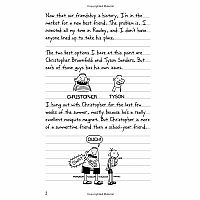 Now that our friendship is history, I'm in the
market for a new best friend. The problem is, I
invested all my time in Rowley, and I don't have
anyone lined up to take his place.
The two best options I have at this point are
Christopher Brownfield and Tyson Sanders. But
each of those guys has his own issues.
CHRISTOPHER TYSON
I hung out with Christopher for the last few
weeks of the summer, mostly because he's a really
excellent mosquito magnet. But Christopher is more
of a summertime friend than a school-year friend.
OUCH!
2